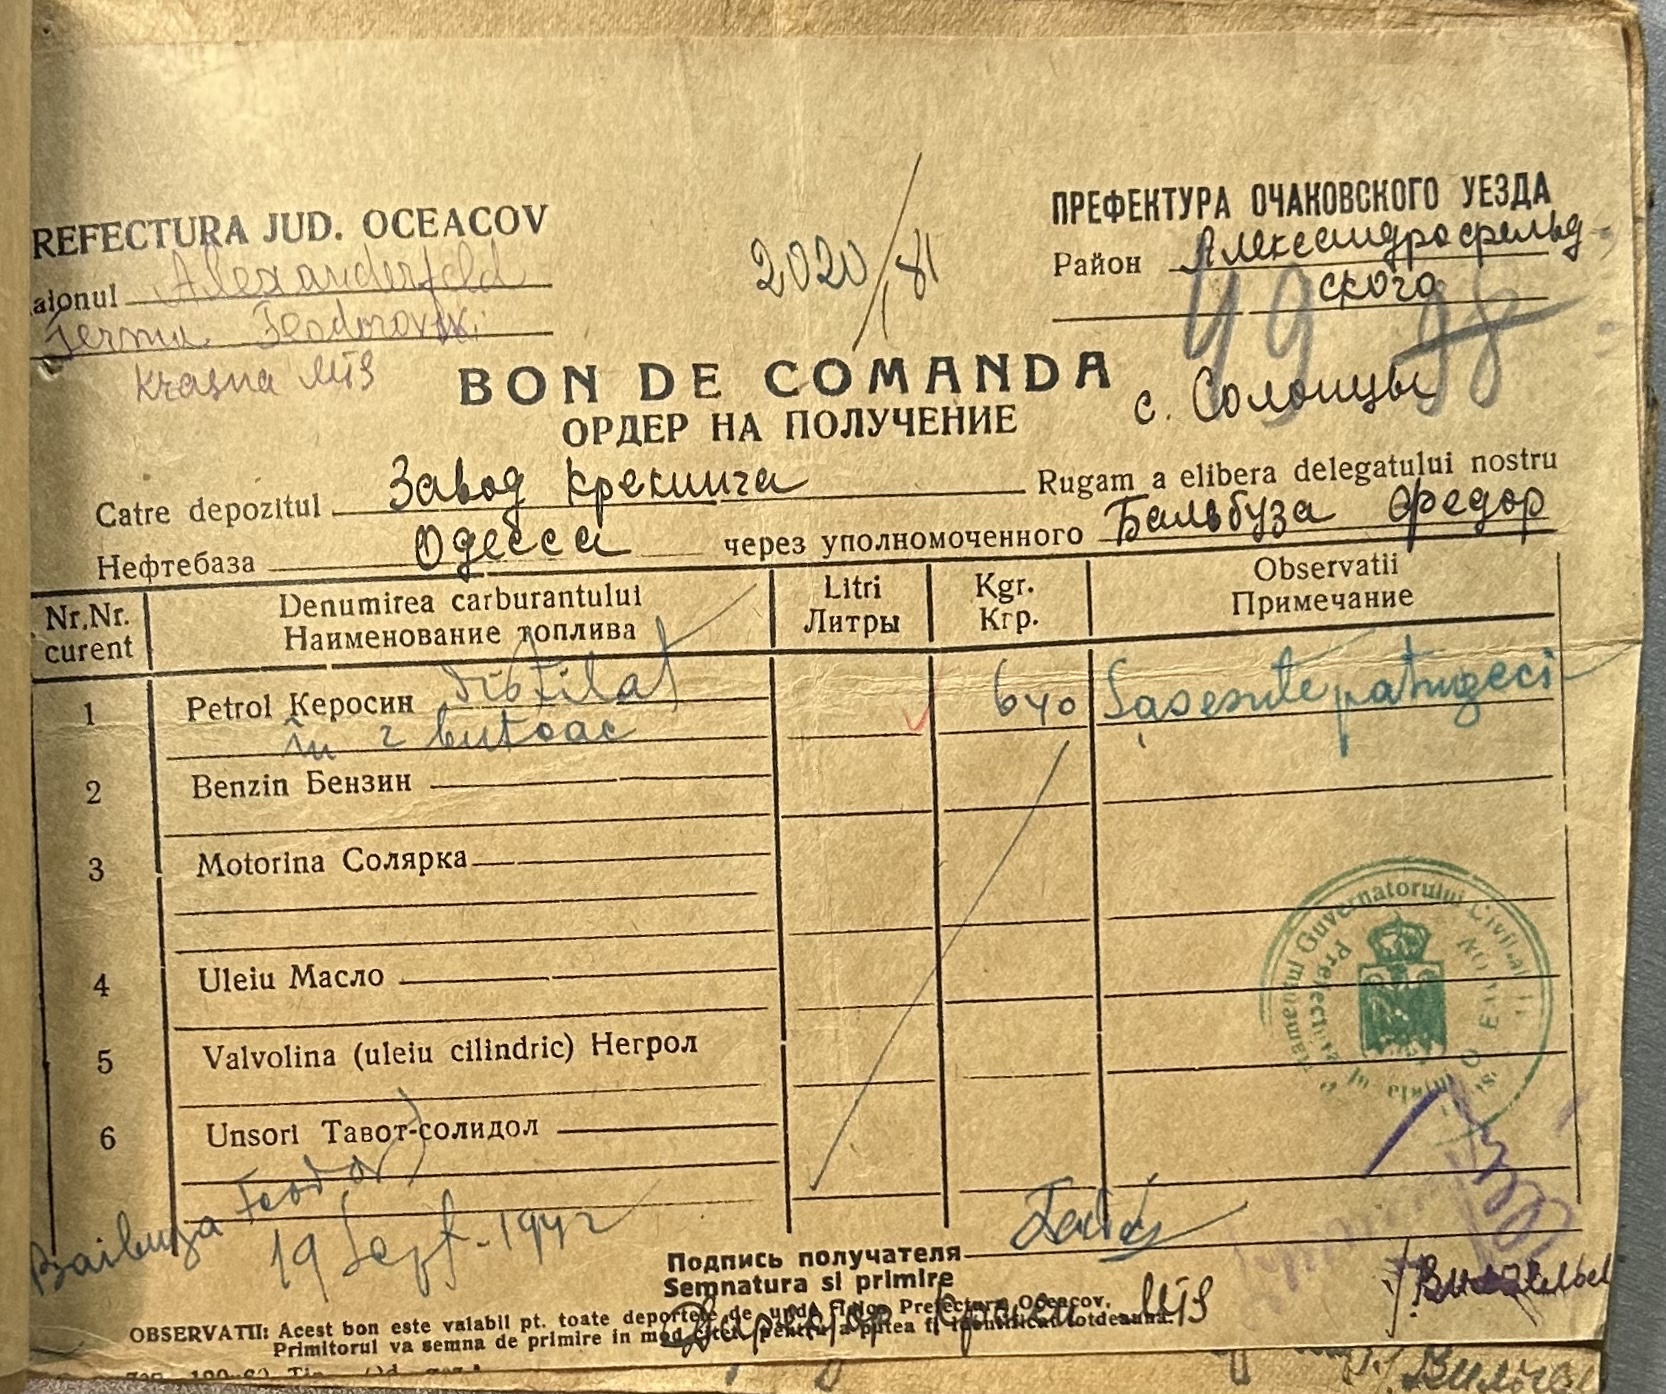 REFECTURA JUD. OCEACOV
aionul Alexanderfeld
ferma Feodorovka
Krasna MTS
2020/81
ПРЕФЕКТУРА ОЧАКОВСКОГО УЕЗДА
Район Александрофельд-
ского
49 98
с. Солонцы
BON DE COMANDA
ОРДЕР НА ПОЛУЧЕНИЕ
Catre depozitul Завод крекинга Rugam a elibera delegatului nostru
Нефтебаза Одесса через уполномоченного Бальбуза Федор
Nr.Nr. curent
Denumirea carburantului
Наименование топлива
Litri
Литры
Kgr.
Кгр.
Observatii
Примечание
1 Petrol Керосин distilat 640 Șasesute patruzeci
în 2 butoae
2 Benzin Бензин
3 Motorina Солярка
4 Uleiu Масло
5 Valvolina (uleiu cilindric) Негрол
6 Unsori Тавот-солидол
Guvernatorului Civil
Balbuza Feodor
19 Sept. 1942
Подпись получателя
Semnatura si primire
Директор Красн. MTS
OBSERVATII: Acest bon este valabil pt. toate deportele de unde Prefectura Oceacov.
Primitorul va semna de primire in mod pentru a putea fi identificat totdeauna.